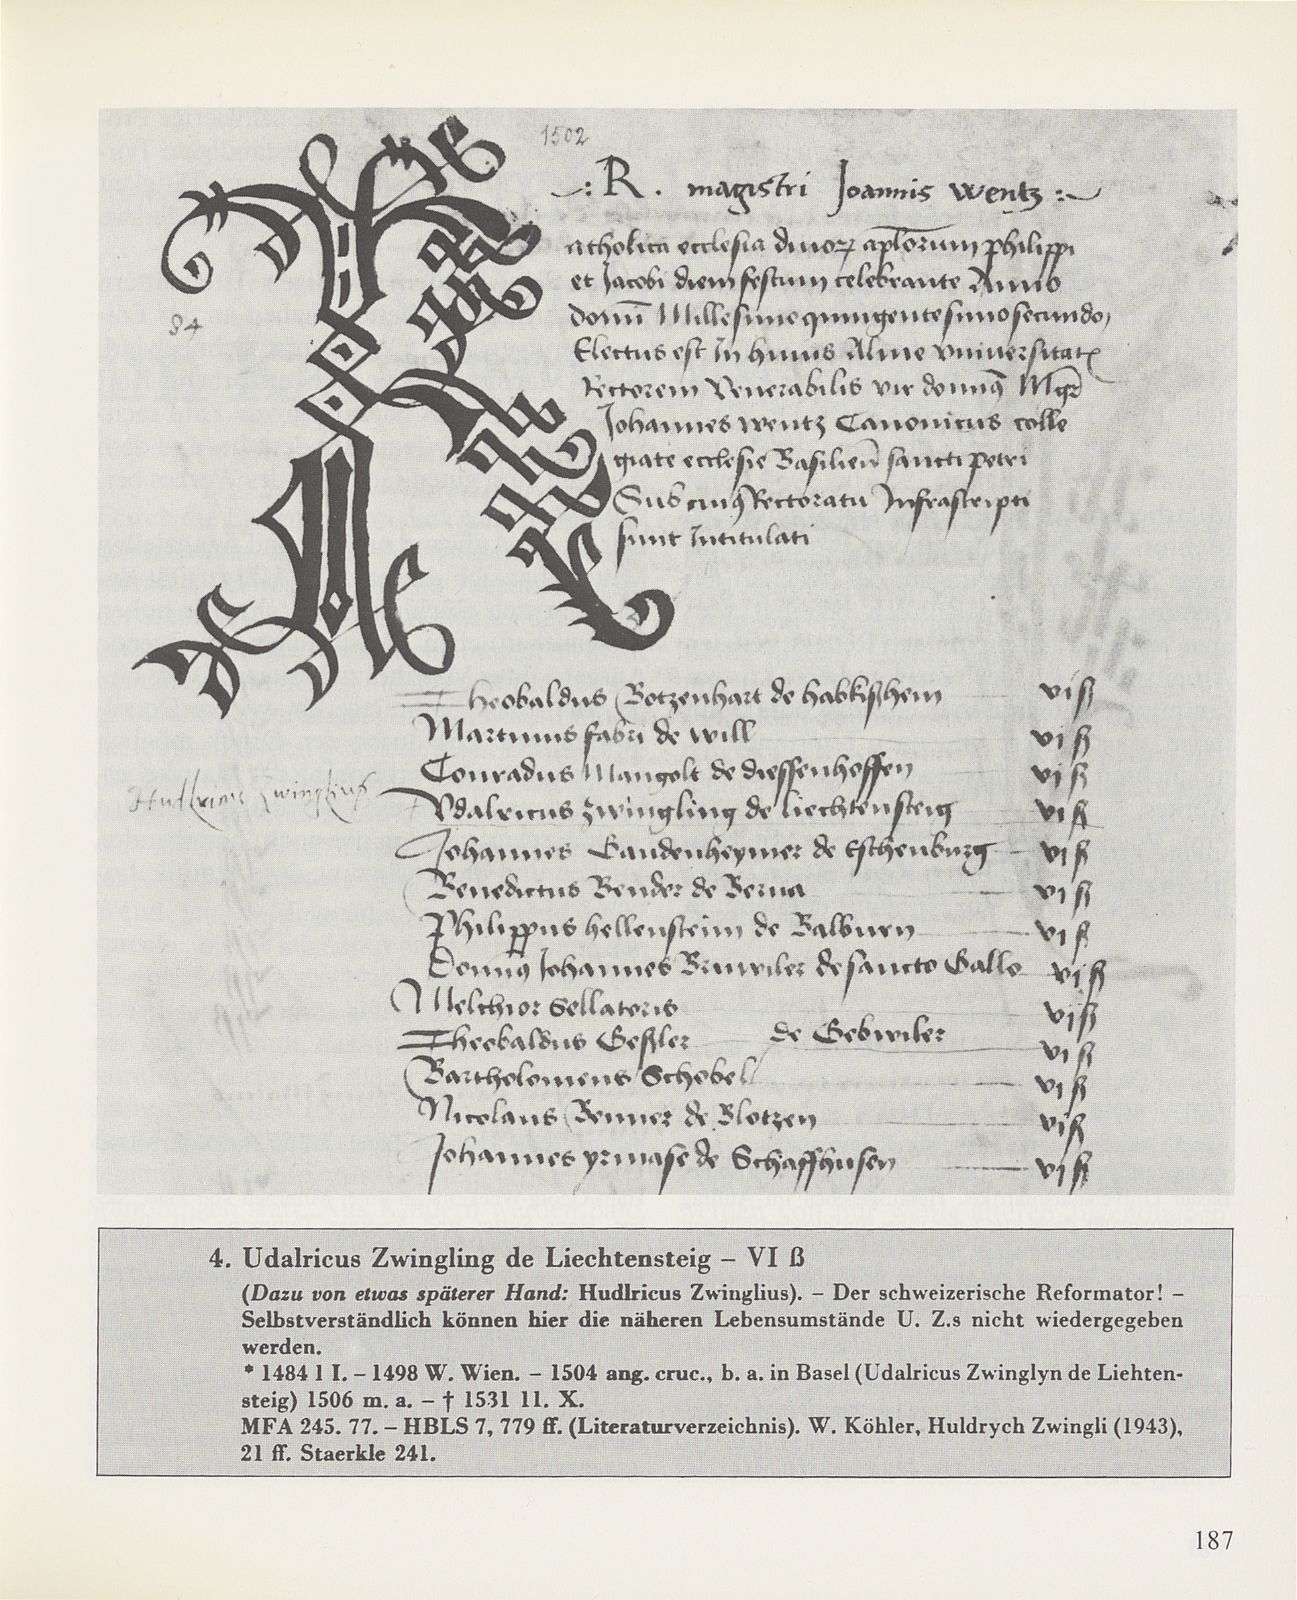 1502
R. magistri Joannis Wentz
84
atholica ecclesia diuor aplorum philippi
et Jacobi diem festum celebrante Anno
domi Millesimo quingentesimo secundo,
Electus est In huius Alme vniuersitat
Rectorem Venerabilis vir domi Mgr
Johannes wentz Canonicus colle
giate ecclesie Basilien sancti petri
Sub cuiq Rectoratu Infrascripti
sunt Intitulati
Theobaldus Botzenhart de habkißhein viß
Martinus fabri de will viß
Conradus Mangolt de diessenhoffen viß
Hudlricus Zwinglius
Vdalricus zwingling de liechtensteig viß
Johannes Gandenheymer de Eschenburg viß
Benedictus Bender de Berna viß
Philippus hellensteim de Balburn viß
Domi Johannes Bruwiler de sancto Gallo viß
Melchior Sellatoris viß
Theobaldus Geßler de Gebwiler viß
Bartholomeus Schobel viß
Nicolaus Benner de Blotzen viß
Johannes yrmase de Schaffhusen viß
4. Udalricus Zwingling de Liechtensteig – VI ß
(Dazu von etwas späterer Hand: Hudlricus Zwinglius). – Der schweizerische Reformator! –
Selbstverständlich können hier die näheren Lebensumstände U. Z.s nicht wiedergegeben
werden.
* 1484 1 I. – 1498 W. Wien. – 1504 ang. cruc., b. a. in Basel (Udalricus Zwinglyn de Liehten-
steig) 1506 m. a. – † 1531 11. X.
MFA 245. 77. – HBLS 7, 779 ff. (Literaturverzeichnis). W. Köhler, Huldrych Zwingli (1943),
21 ff. Staerkle 241.
187